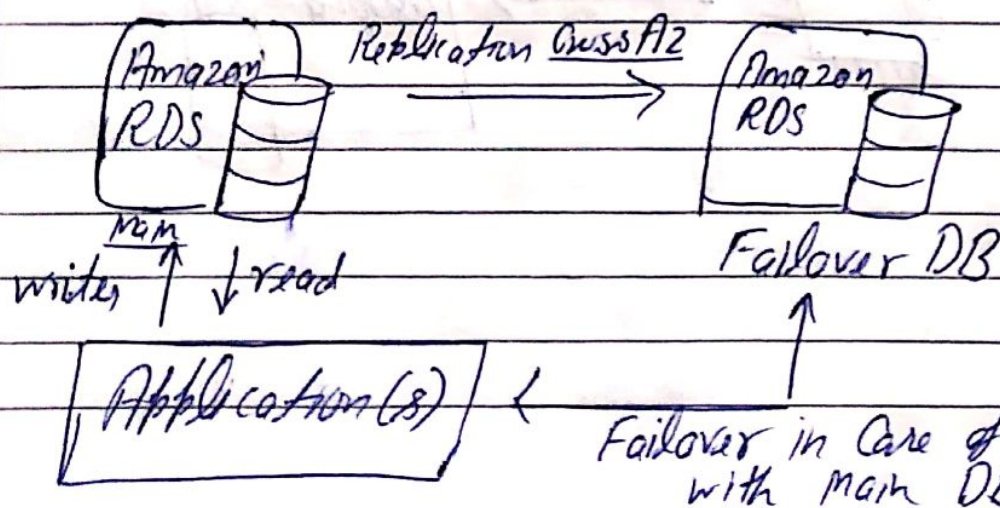 Amazon
RDS
Replication Cross AZ
Amazon
RDS
Main
Failover DB
writes
read
Application(s)
Failover in Case of
with main